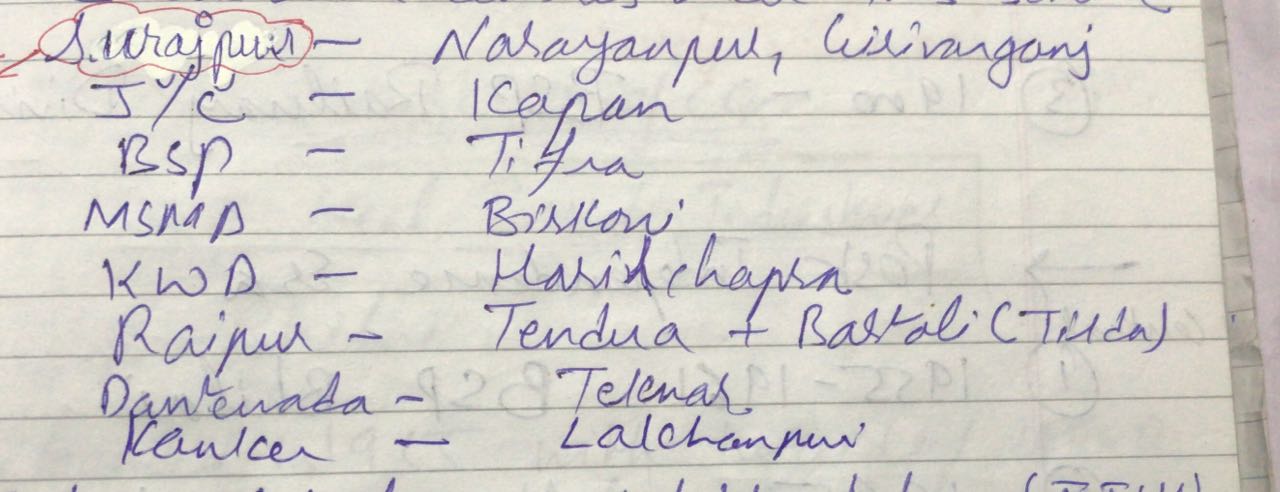 Surajpur - Narayanpur, Girivarganj
J/C - Kapan
BSP - Tifra
MSMD - Birkoni
KWD - Harinchapra
Raipur - Tendua + Bartori (Tilda)
Dantewada - Teknar
Kanker - Lakhanpuri